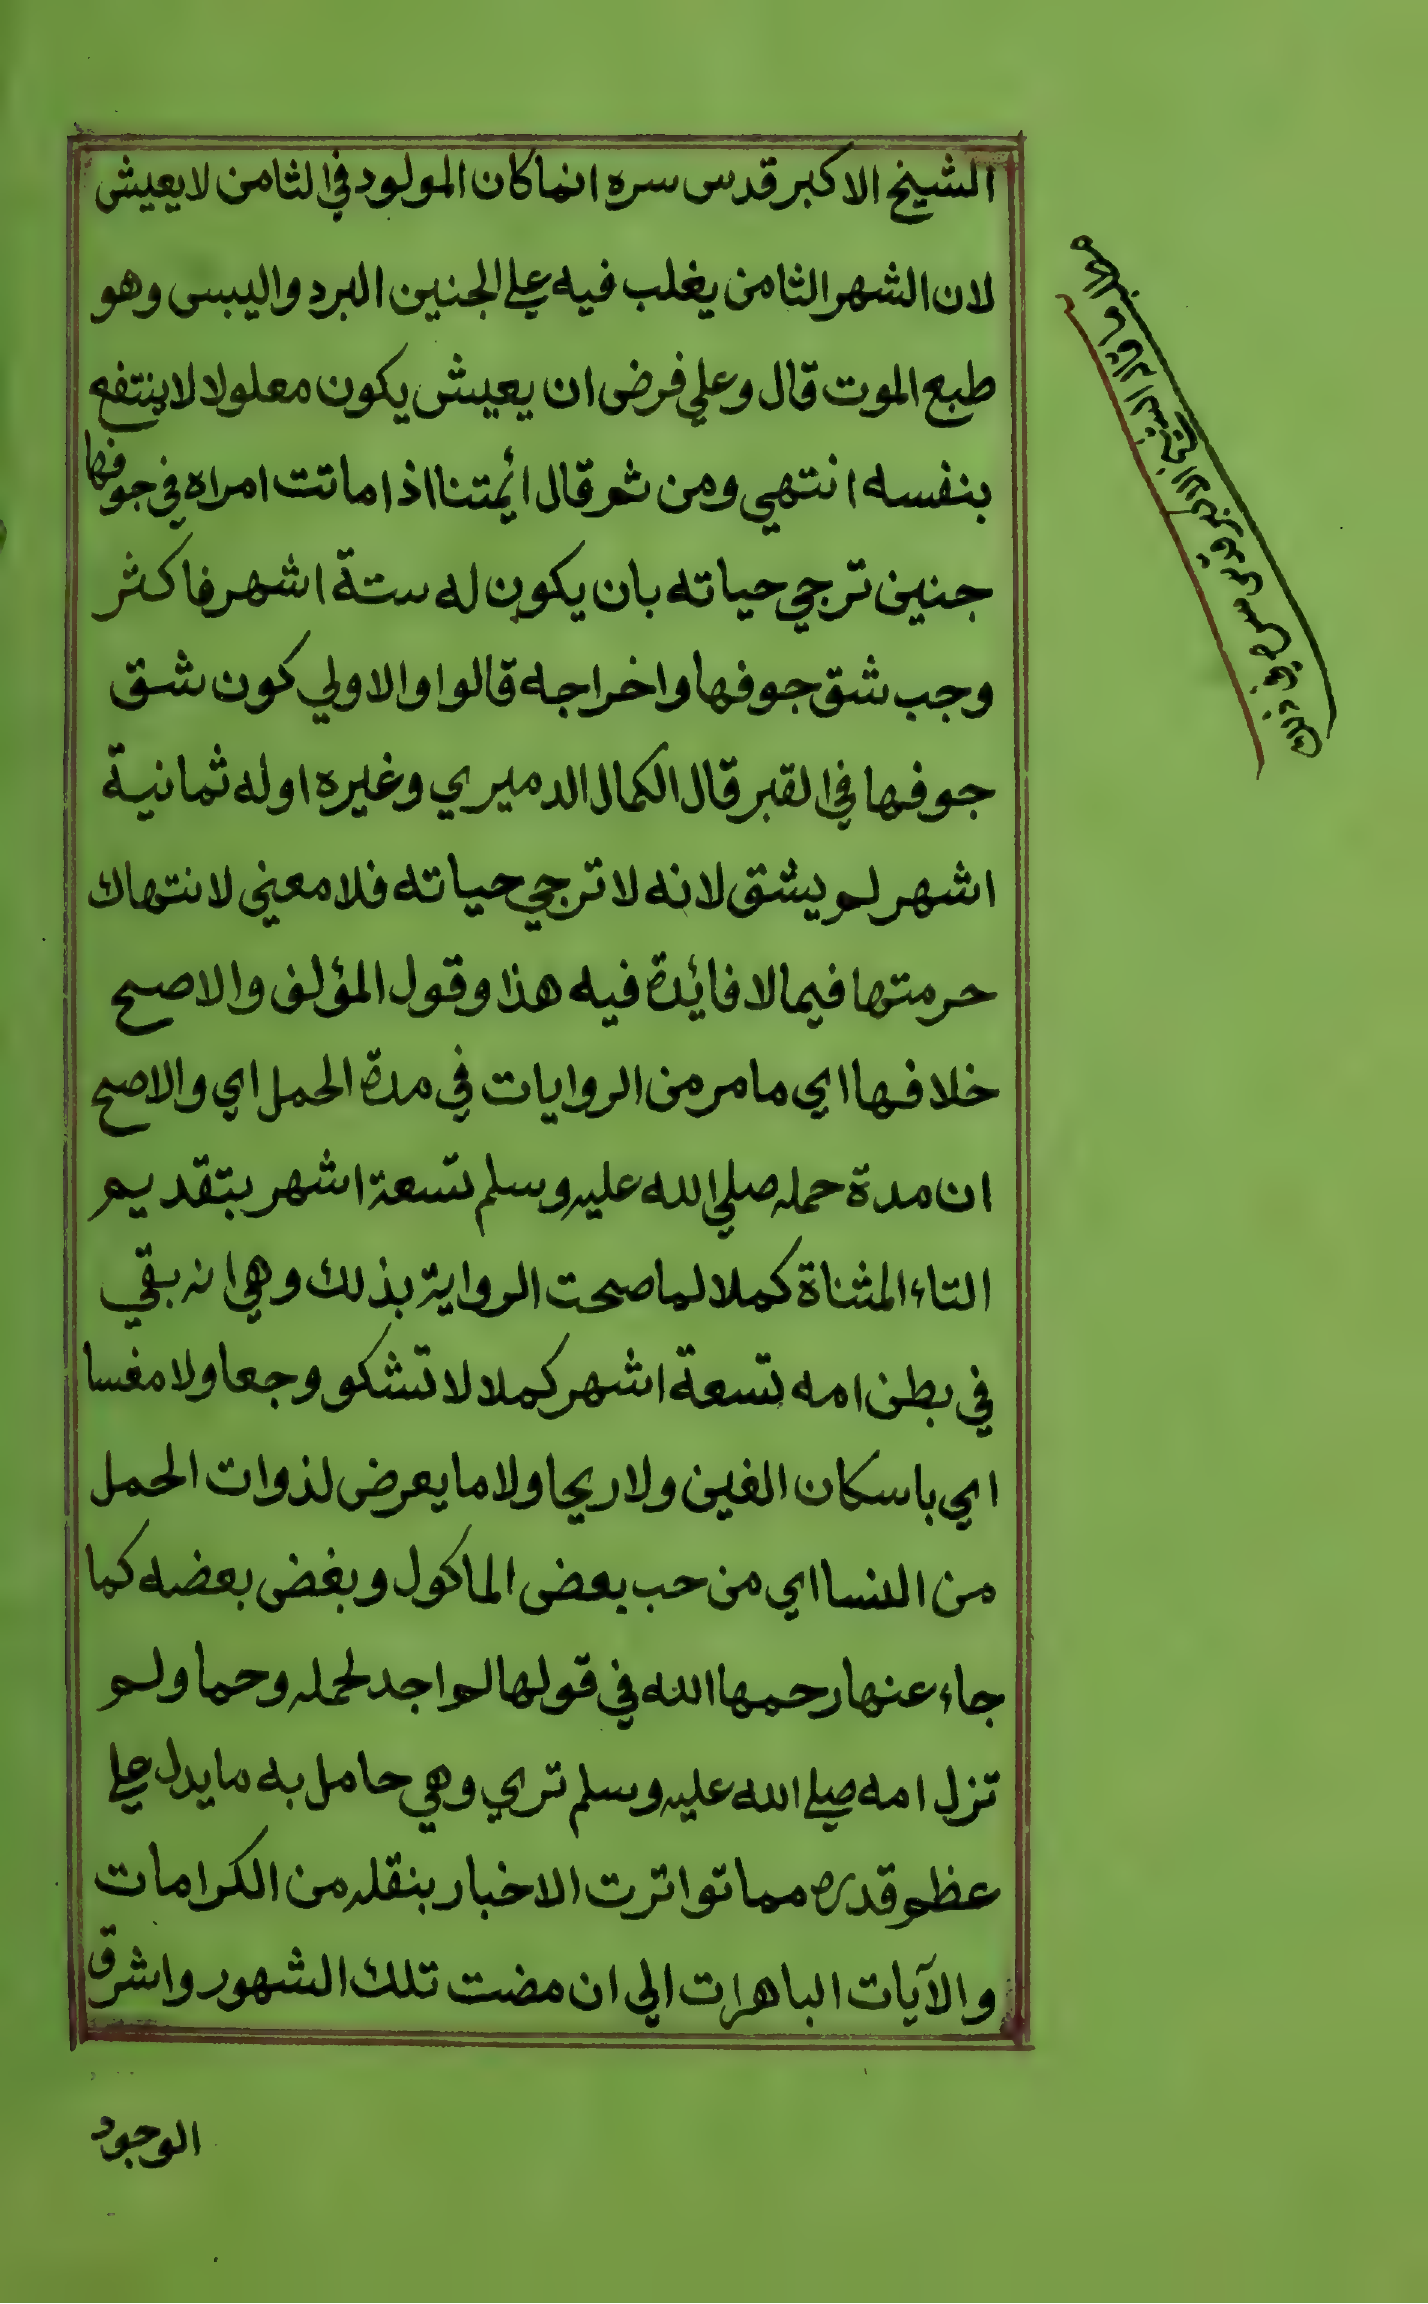 الشيخ الاكبر قدس سره انما كان المولود في الثامن لا يعيش
لان الشهر الثامن يغلب فيه علي الجنين البرد واليبس وهو
طبع الموت قال وعلي فرض ان يعيش يكون معلولا لا ينتفع
بنفسه انتهي ومن ثم قال ائمتنا اذا ماتت امراه في جوفها
جنين ترجي حياته بان يكون له ستة اشهر فاكثر
وجب شق جوفها واخراجه قالوا والاولي كون شق
جوفها في القبر قال الكمال الدميري وغيره اوله ثمانية
اشهر لم يشق لانه لا ترجي حياته فلا معني لانتهاك
حرمتها فيما لا فائدة فيه هذا وقول المؤلف والاصح
خلافها اي ما مر من الروايات في مدة الحمل اي والاصح
ان مدة حمله صلي الله عليه وسلم تسعة اشهر بتقديم
التاء المثناة كملا لما صحت الرواية بذلك وهي انه بقي
في بطن امه تسعة اشهر كملا لا تشكو وجعا ولا مغسا
اي باسكان الغين ولا ريحا ولا ما يعرض لذوات الحمل
من النسا اي من حب بعض الماكول وبغض بعضه كما
جاء عنها رحمها الله في قولها لم اجد لحمله وحما ولم
تزل امه صلي الله عليه وسلم تري وهي حامل به ما يدل علي
عظم قدره مما تواترت الاخبار بنقله من الكرامات
والآيات الباهرات الي ان مضت تلك الشهور واشرق
الوجود
ما قاله الشيخ الاكبر قدس سره في ذلك